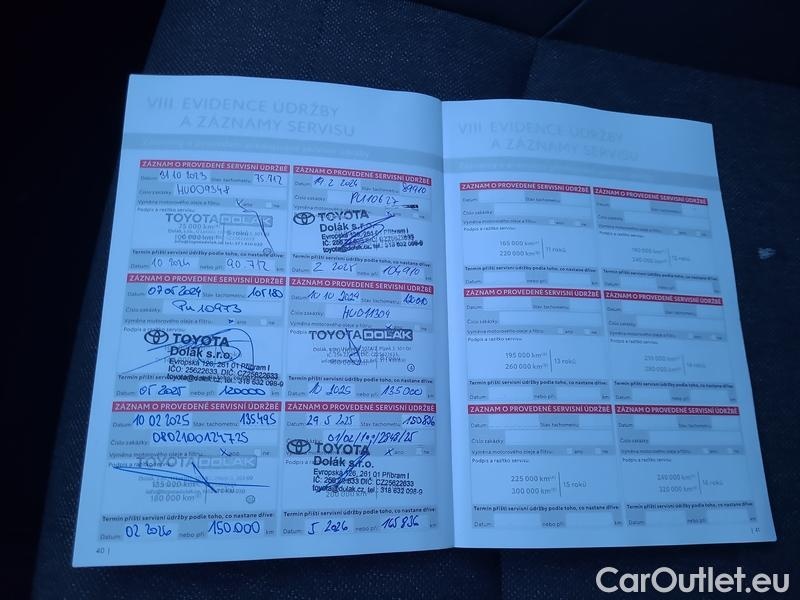 VIII. EVIDENCE ÚDRŽBY
A ZÁZNAMY SERVISU
ZÁZNAM O PROVEDENÉ SERVISNÍ ÚDRŽBĚ
Datum: 31 10 2023 Stav tachometru: 75.712
Číslo zakázky: HU009348
Výměna motorového oleje a filtru: ano ne
Podpis a razítko servisu:
TOYOTA DOLÁK
75 000 km
5 roků
Termín příští servisní údržby podle toho, co nastane dříve:
Datum: 10 2024 nebo při: 90.712 km
ZÁZNAM O PROVEDENÉ SERVISNÍ ÚDRŽBĚ
Datum: 19.2 2024 Stav tachometru: 89910
Číslo zakázky: PU10627
Výměna motorového oleje a filtru: ano ne
TOYOTA
Dolák s.r.o.
Evropská 126, 261 01 Příbram I
IČ: 25622633, DIČ: CZ25622633
toyota@dolak.cz, tel.: 318 632 098-9
Termín příští servisní údržby podle toho, co nastane dříve:
Datum: 2 2025 nebo při: 104910 km
ZÁZNAM O PROVEDENÉ SERVISNÍ ÚDRŽBĚ
Datum: 07 05 2024 Stav tachometru: 105180
Číslo zakázky: PU10973
Výměna motorového oleje a filtru: ano ne
TOYOTA
Dolák s.r.o.
Evropská 126, 261 01 Příbram I
IČO: 25622633, DIČ: CZ25622633
toyota@dolak.cz, tel.: 318 632 098-9
Termín příští servisní údržby podle toho, co nastane dříve:
Datum: 05 2025 nebo při: 120000 km
ZÁZNAM O PROVEDENÉ SERVISNÍ ÚDRŽBĚ
Datum: 10 10 2024 Stav tachometru: 120010
Číslo zakázky: HU011304
Výměna motorového oleje a filtru: ano ne
Podpis a razítko servisu:
TOYOTA DOLÁK
Termín příští servisní údržby podle toho, co nastane dříve:
Datum: 10 2025 nebo při: 135000 km
ZÁZNAM O PROVEDENÉ SERVISNÍ ÚDRŽBĚ
Datum: 10 02 2025 Stav tachometru: 135495
Číslo zakázky: 0802100124725
Výměna motorového oleje a filtru: ano ne
Podpis a razítko servisu:
TOYOTA DOLÁK
135 000 km
180 000 km
Termín příští servisní údržby podle toho, co nastane dříve:
Datum: 02 2026 nebo při: 150.000 km
ZÁZNAM O PROVEDENÉ SERVISNÍ ÚDRŽBĚ
Datum: 29.5 2025 Stav tachometru: 150836
Číslo zakázky:
Výměna motorového oleje a filtru: ano ne
TOYOTA
Dolák s.r.o.
Evropská 126, 261 01 Příbram I
IČ: 25622633 DIČ: CZ25622633
toyota@dolak.cz, tel.: 318 632 098-9
200 000 km
Termín příští servisní údržby podle toho, co nastane dříve:
Datum: 5 2026 nebo při: 165836 km
40 |
VIII. EVIDENCE ÚDRŽBY
A ZÁZNAMY SERVISU
ZÁZNAM O PROVEDENÉ SERVISNÍ ÚDRŽBĚ
Datum: Stav tachometru:
Číslo zakázky:
Výměna motorového oleje a filtru: ano ne
Podpis a razítko servisu:
165 000 km
220 000 km
11 roků
Termín příští servisní údržby podle toho, co nastane dříve:
Datum: nebo při: km
ZÁZNAM O PROVEDENÉ SERVISNÍ ÚDRŽBĚ
Datum: Stav tachometru:
Číslo zakázky:
Výměna motorového oleje a filtru: ano ne
Podpis a razítko servisu:
180 000 km
240 000 km
12 roků
Termín příští servisní údržby podle toho, co nastane dříve:
Datum: nebo při: km
ZÁZNAM O PROVEDENÉ SERVISNÍ ÚDRŽBĚ
Datum: Stav tachometru:
Číslo zakázky:
Výměna motorového oleje a filtru: ano ne
Podpis a razítko servisu:
195 000 km
260 000 km
13 roků
Termín příští servisní údržby podle toho, co nastane dříve:
Datum: nebo při: km
ZÁZNAM O PROVEDENÉ SERVISNÍ ÚDRŽBĚ
Datum: Stav tachometru:
Číslo zakázky:
Výměna motorového oleje a filtru: ano ne
Podpis a razítko servisu:
210 000 km
280 000 km
14 roků
Termín příští servisní údržby podle toho, co nastane dříve:
Datum: nebo při: km
ZÁZNAM O PROVEDENÉ SERVISNÍ ÚDRŽBĚ
Datum: Stav tachometru:
Číslo zakázky:
Výměna motorového oleje a filtru: ano ne
Podpis a razítko servisu:
225 000 km
300 000 km
15 roků
Termín příští servisní údržby podle toho, co nastane dříve:
Datum: nebo při: km
ZÁZNAM O PROVEDENÉ SERVISNÍ ÚDRŽBĚ
Datum: Stav tachometru:
Číslo zakázky:
Výměna motorového oleje a filtru: ano ne
Podpis a razítko servisu:
240 000 km
320 000 km
16 roků
Termín příští servisní údržby podle toho, co nastane dříve:
Datum: nebo při: km
| 41
CarOutlet.eu